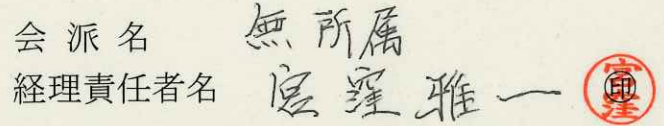 会派名 無所属
経理責任者名 宮窪雅一 ㊞
宮窪